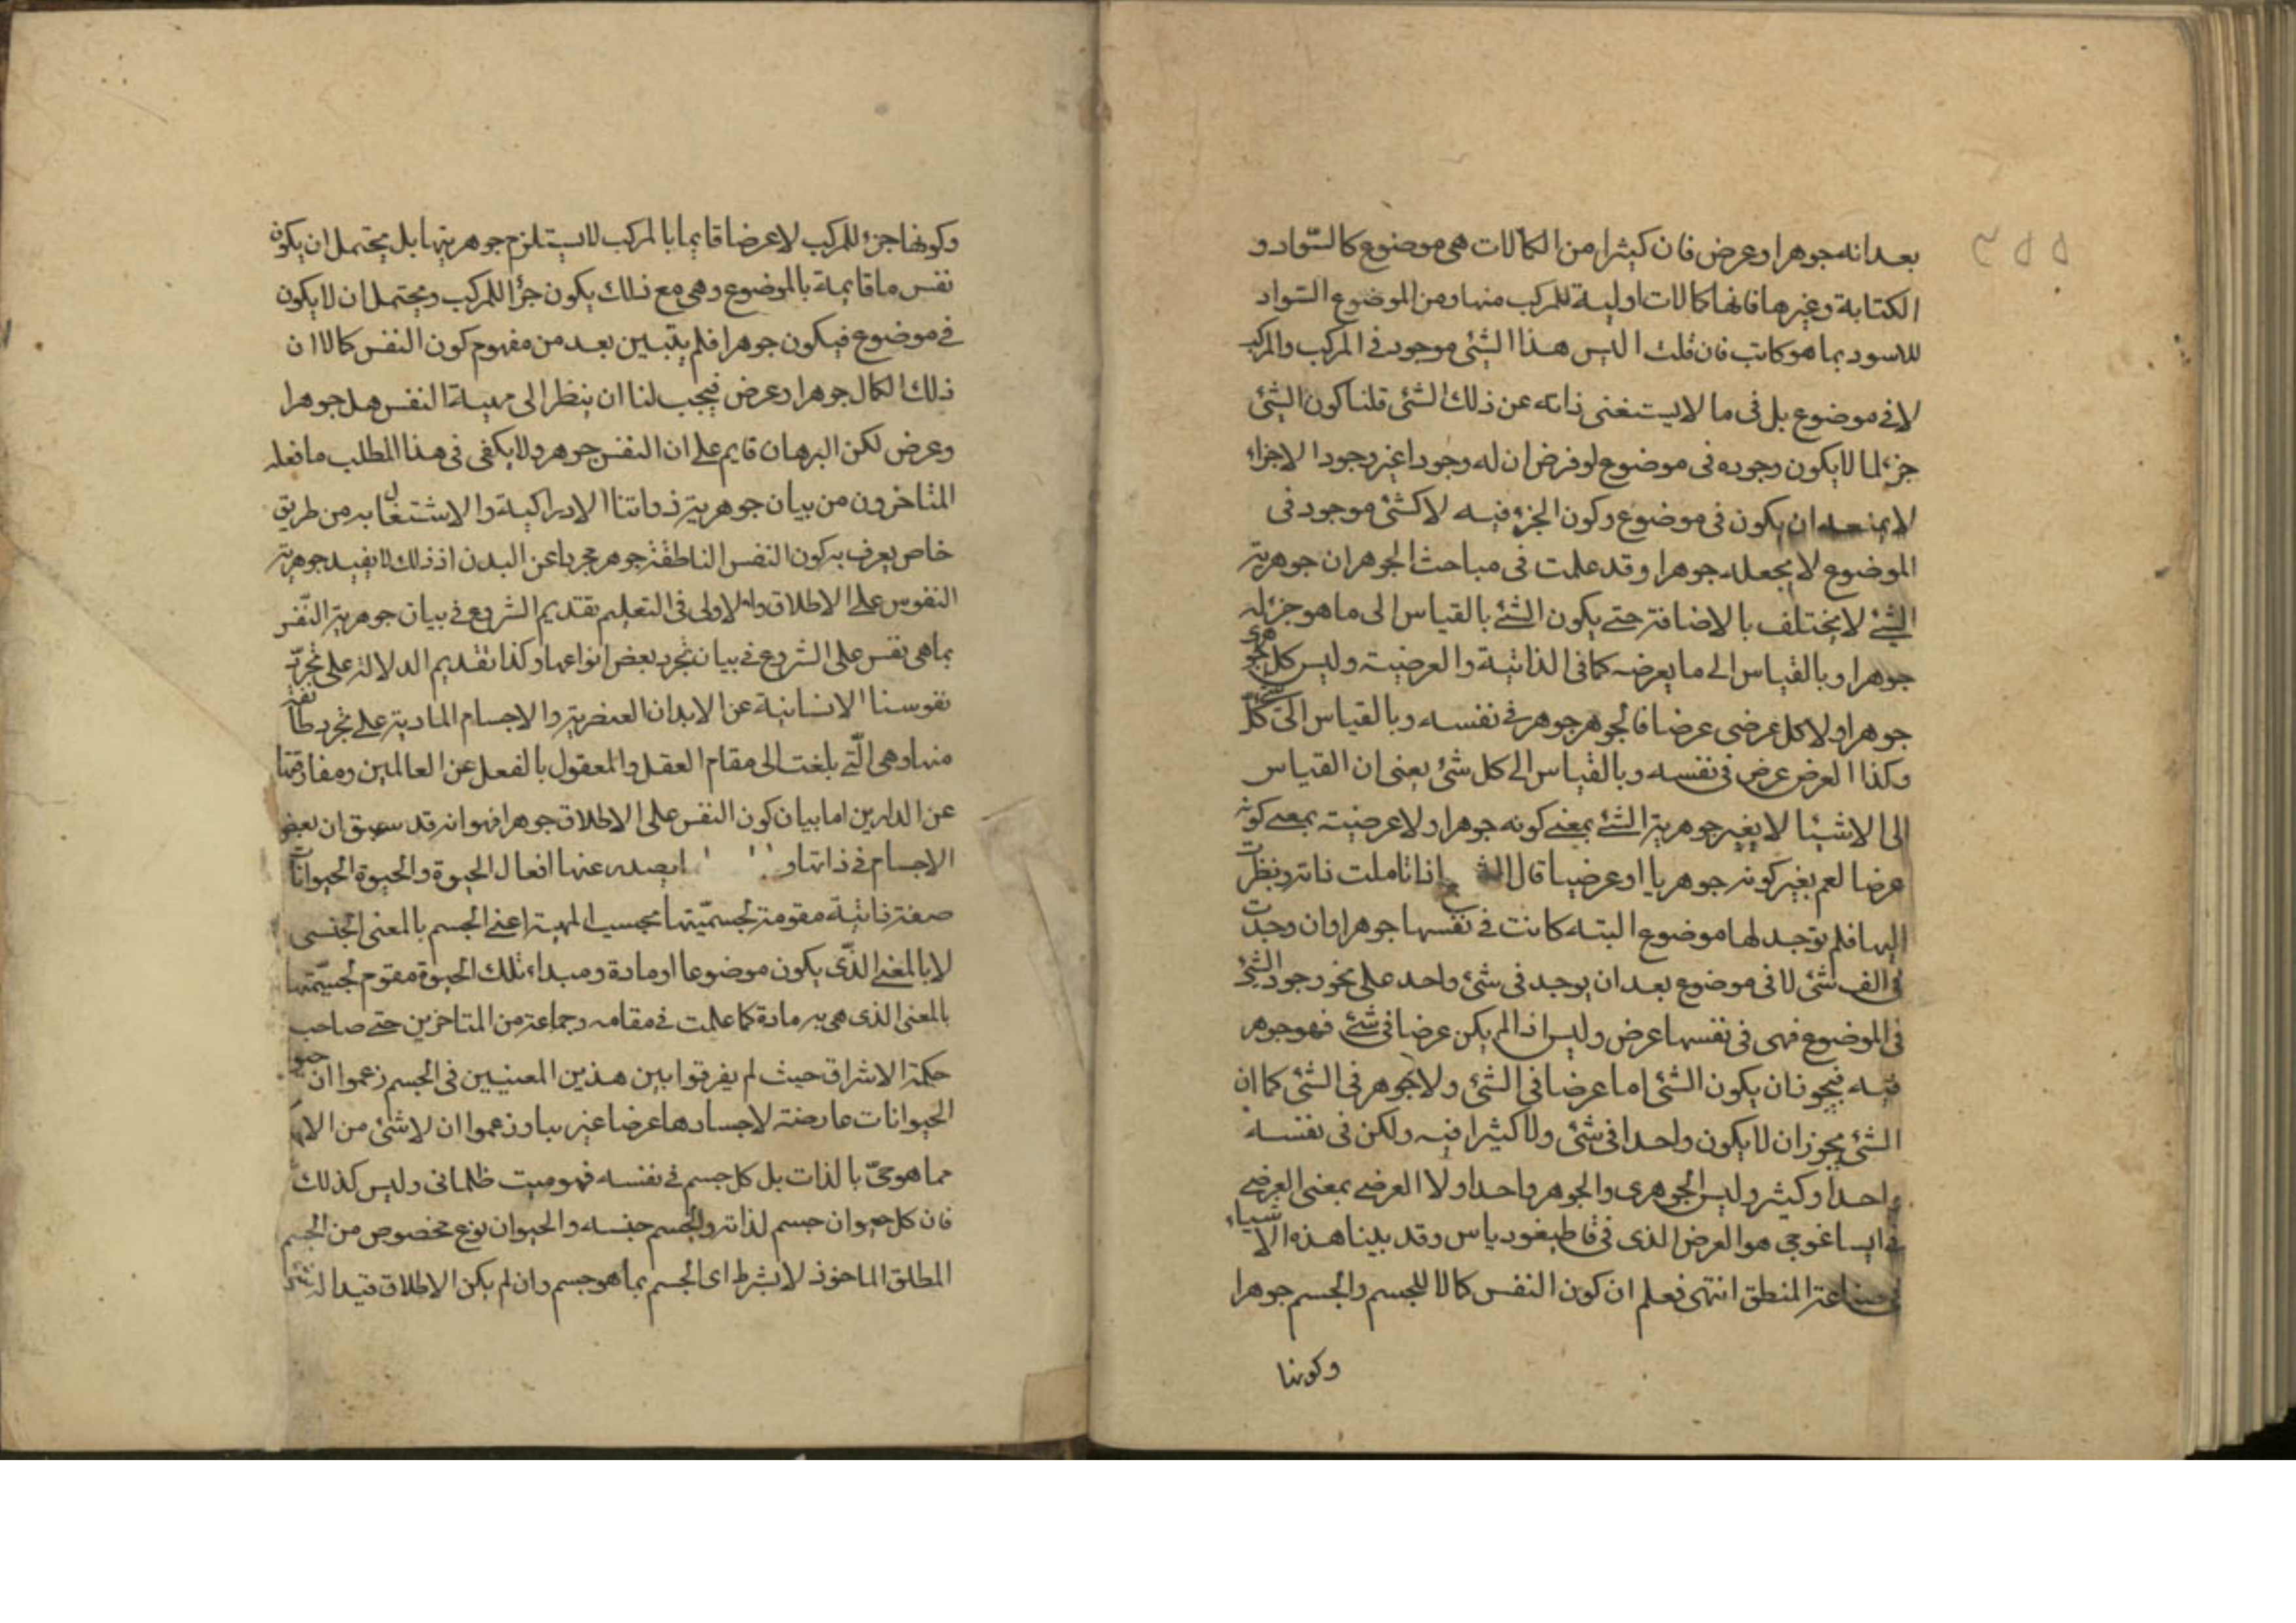 بعد انه جوهر او عرض فان كثيرا من الكمالات هى موضوع كالسّواد و
الكتابة وغيرها فانها كمالات اولية للمركب منها ومن الموضوع السّواد
للاسود بما هو كاتب فان قلت اليس هذا الشئ موجود فى المركب والمركب
لا فى موضوع بل فى ما لا يستغنى ذاته عن ذلك الشئ قلنا كون الشئ
جزء لما لا يكون وجوده فى موضوع لو فرض ان له وجودا غير وجود الاجزاء
لا يمنعه ان يكون فى موضوع وكون الجزء فيه لا كشئ موجود فى
الموضوع لا يجعله جوهرا وقد علمت فى مباحث الجوهر ان جوهرية
الشئ لا يختلف بالاضافة حتى يكون الشئ بالقياس الى ما هو جزء له
جوهرا وبالقياس الى ما يعرضه كما فى الذاتية والعرضية وليس كل جوهرى
جوهرا ولا كل عرضى عرضا فالجوهر جوهر فى نفسه وبالقياس الى كل شئ
وكذا العرض عرض فى نفسه وبالقياس الى كل شئ يعنى ان القياس
الى الاشيئا لا يغير جوهرية الشئ بمعنى كونه جوهرا ولا عرضيته بمعنى كونه
عرضا لعم يغير كونه جوهريا او عرضيا قال اذا تاملت ذاته ونظرت
اليها فلم توجد لها موضوع البتة كانت فى نفسها جوهرا وان وجدت
فى الف شئ لا فى موضوع بعد ان يوجد فى شئ واحد على نحو وجود الشئ
فى الموضوع فهى فى نفسها عرض وليس اذا لم يكن عرضا فى شئ فهو جوهر
فيه فيجوز ان يكون الشئ اما عرضا فى الشئ ولا جوهر فى الشئ كما ان
الشئ يجوز ان لا يكون واحدا فى شئ ولا كثيرا فيه ولكن فى نفسه
واحد او كثير وليس الجوهرى والجوهر واحدا ولا العرضى بمعنى العرضى
فى ايساغوجى هو العرض الذى فى قاطيغورياس وقد بينا هذه الاشياء
فى صناعة المنطق انتهى فعلم ان كون النفس كمالا للجسم والجسم جوهرا
وكونها
وكونها جزء للمركب لا عرضا قايما بالمركب لا يستلزم جوهريتها بل يحتمل ان يكون
نفس ما قايمة بالموضوع وهى مع ذلك يكون جزأ للمركب ويحتمل ان لا يكون
فى موضوع فيكون جوهرا فلم يتبين بعد من مفهوم كون النفس كمالا ان
ذلك الكمال جوهر او عرض فيجب لنا ان ينظر الى مهية النفس هل جوهرا
وعرض لكن البرهان قايم على ان النفس جوهر ولا يكفى فى هذا المطلب ما فعله
المتاخرون من بيان جوهرية ذواتنا الادراكية والاشتغال به من طريق
خاص يعرف به كون النفس الناطقة جوهر مجردا عن البدن اذ ذلك لا يفيد جوهرية
النفوس على الاطلاق والاولى فى التعليم تقديم الشروع فى بيان جوهرية النّفس
بما هى نفس على الشروع فى بيان تجرد بعض انواعها وكذا تقديم الدلالة على تجرّد
نفوسنا الانسانية عن الابدان العنصرية والاجسام المادية على تجرد طائفة
منها وهى الّتى بلغت الى مقام العقل والمعقول بالفعل عن العالمين ومفارقتها
عن الدارين اما بيان كون النفس على الاطلاق جوهرا فهو انه قد سبق ان بعض
الاجسام فى ذاتها و ايصدر عنها افعال الحيوة والحيوة الحيوانات
صفة ذاتية مقومة لجسميّتها بحسب المهية اعنى الجسم بالمعنى الجنسى
لا بالمعنى الذّى يكون موضوعا او مادة ومبداء تلك الحيوة مقوم لجسميّتها
بالمعنى الذى هى به مادة كما علمت فى مقامه وجماعة من المتاخرين حتى صاحب
حكمة الاشراق حيث لم يفرقوا بين هذين المعنيين فى الجسم زعموا ان حيو
الحيوانات عارضة لاجسادها عرضا غريبا وزعموا ان لا شئ من
مما هو حىّ بالذات بل كل جسم فى نفسه فهو ميت ظلمانى وليس كذلك
فان كل حيوان جسم لذاته والجسم جنسه والحيوان نوع مخصوص من الجسم
المطلق الماخوذ لا بشرط اى الجسم بما هو جسم وان لم يكن الاطلاق قيدا له